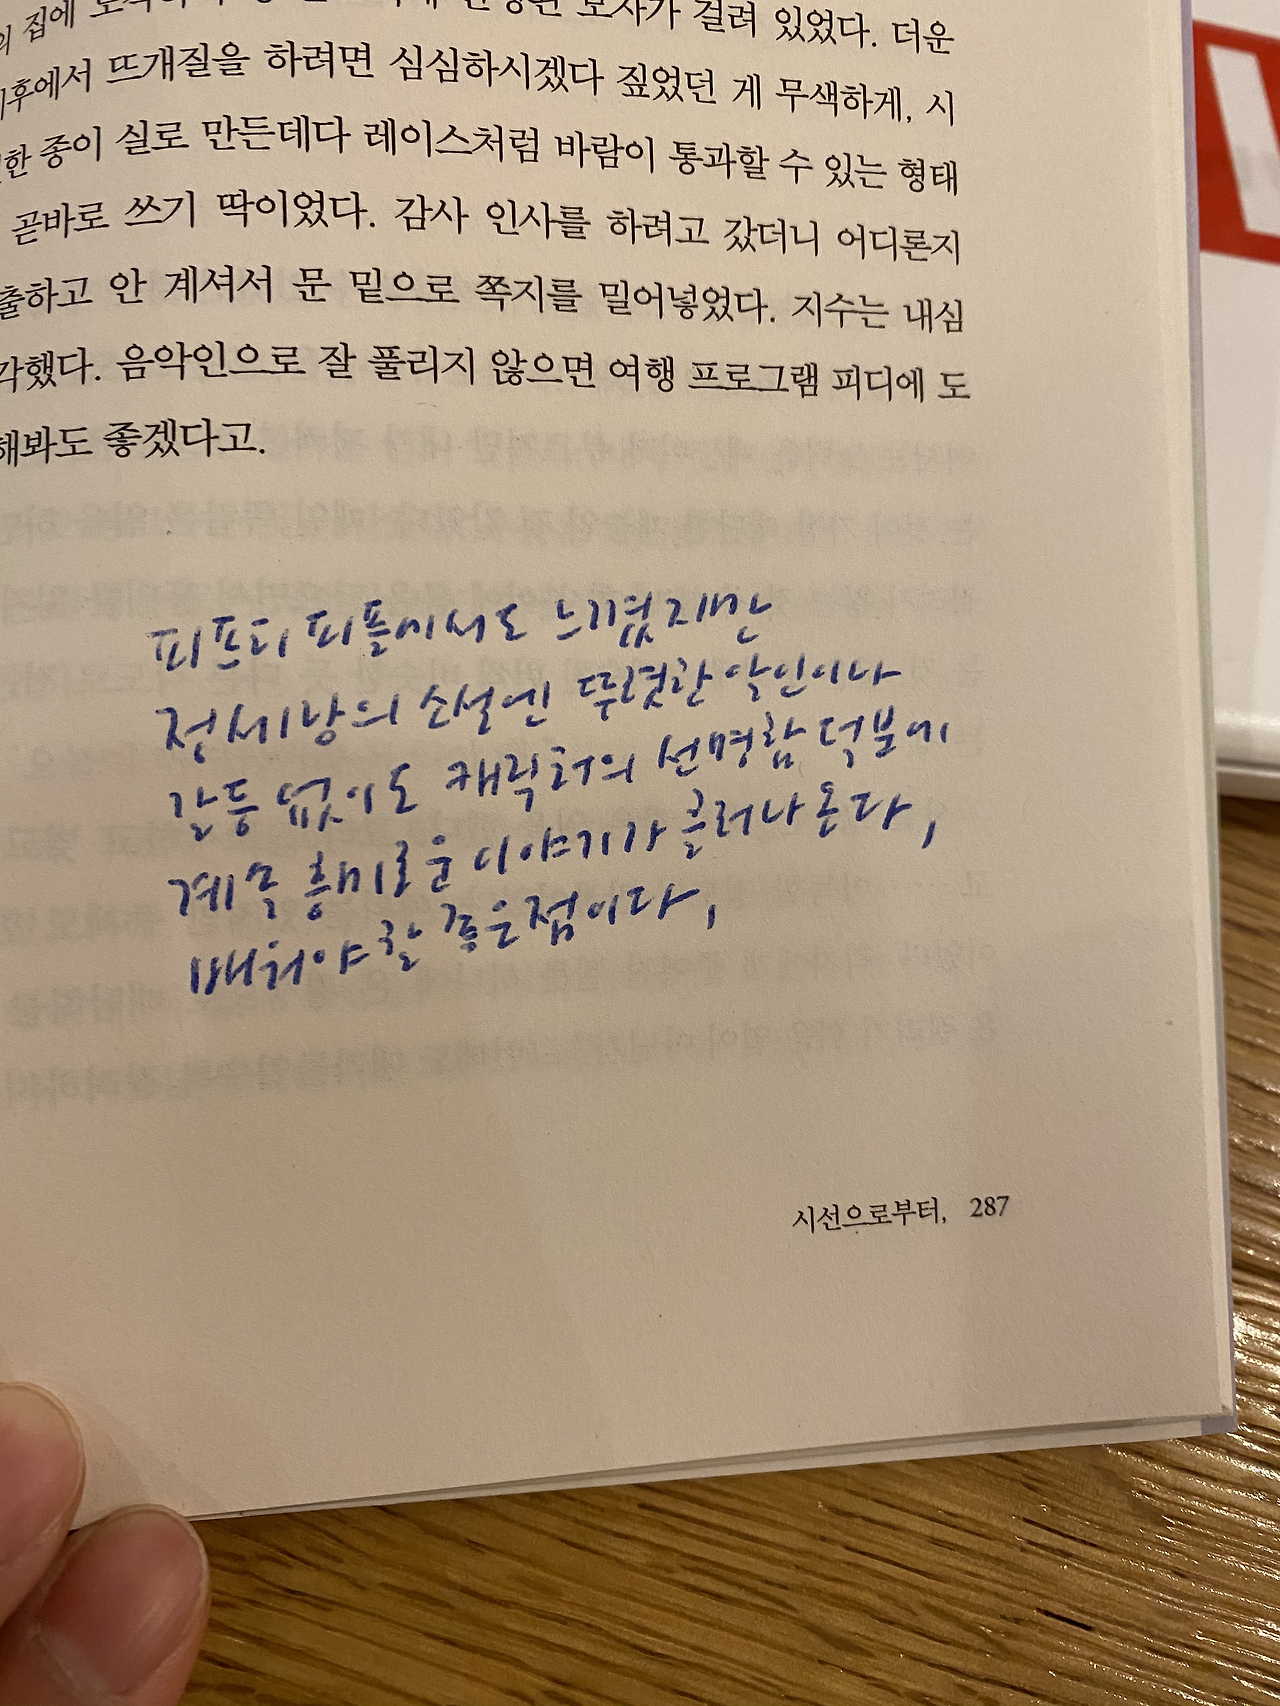 집에
걸려 있었다. 더운
기후에서 뜨개질을 하려면 심심하시겠다 짚었던 게 무색하게, 시
한 종이 실로 만든데다 레이스처럼 바람이 통과할 수 있는 형태
곧바로 쓰기 딱이었다. 감사 인사를 하려고 갔더니 어디론지
출하고 안 계셔서 문 밑으로 쪽지를 밀어넣었다. 지수는 내심
각했다. 음악인으로 잘 풀리지 않으면 여행 프로그램 피디에 도
해봐도 좋겠다고.
피프티 피플에서도 느꼈지만
정세랑의 소설엔 뚜렷한 악인이나
갈등 없이도 캐릭터의 선명함 덕분에
계속 흥미로운 이야기가 흘러나온다,
배워야 할 좋은 점이다,
시선으로부터, 287